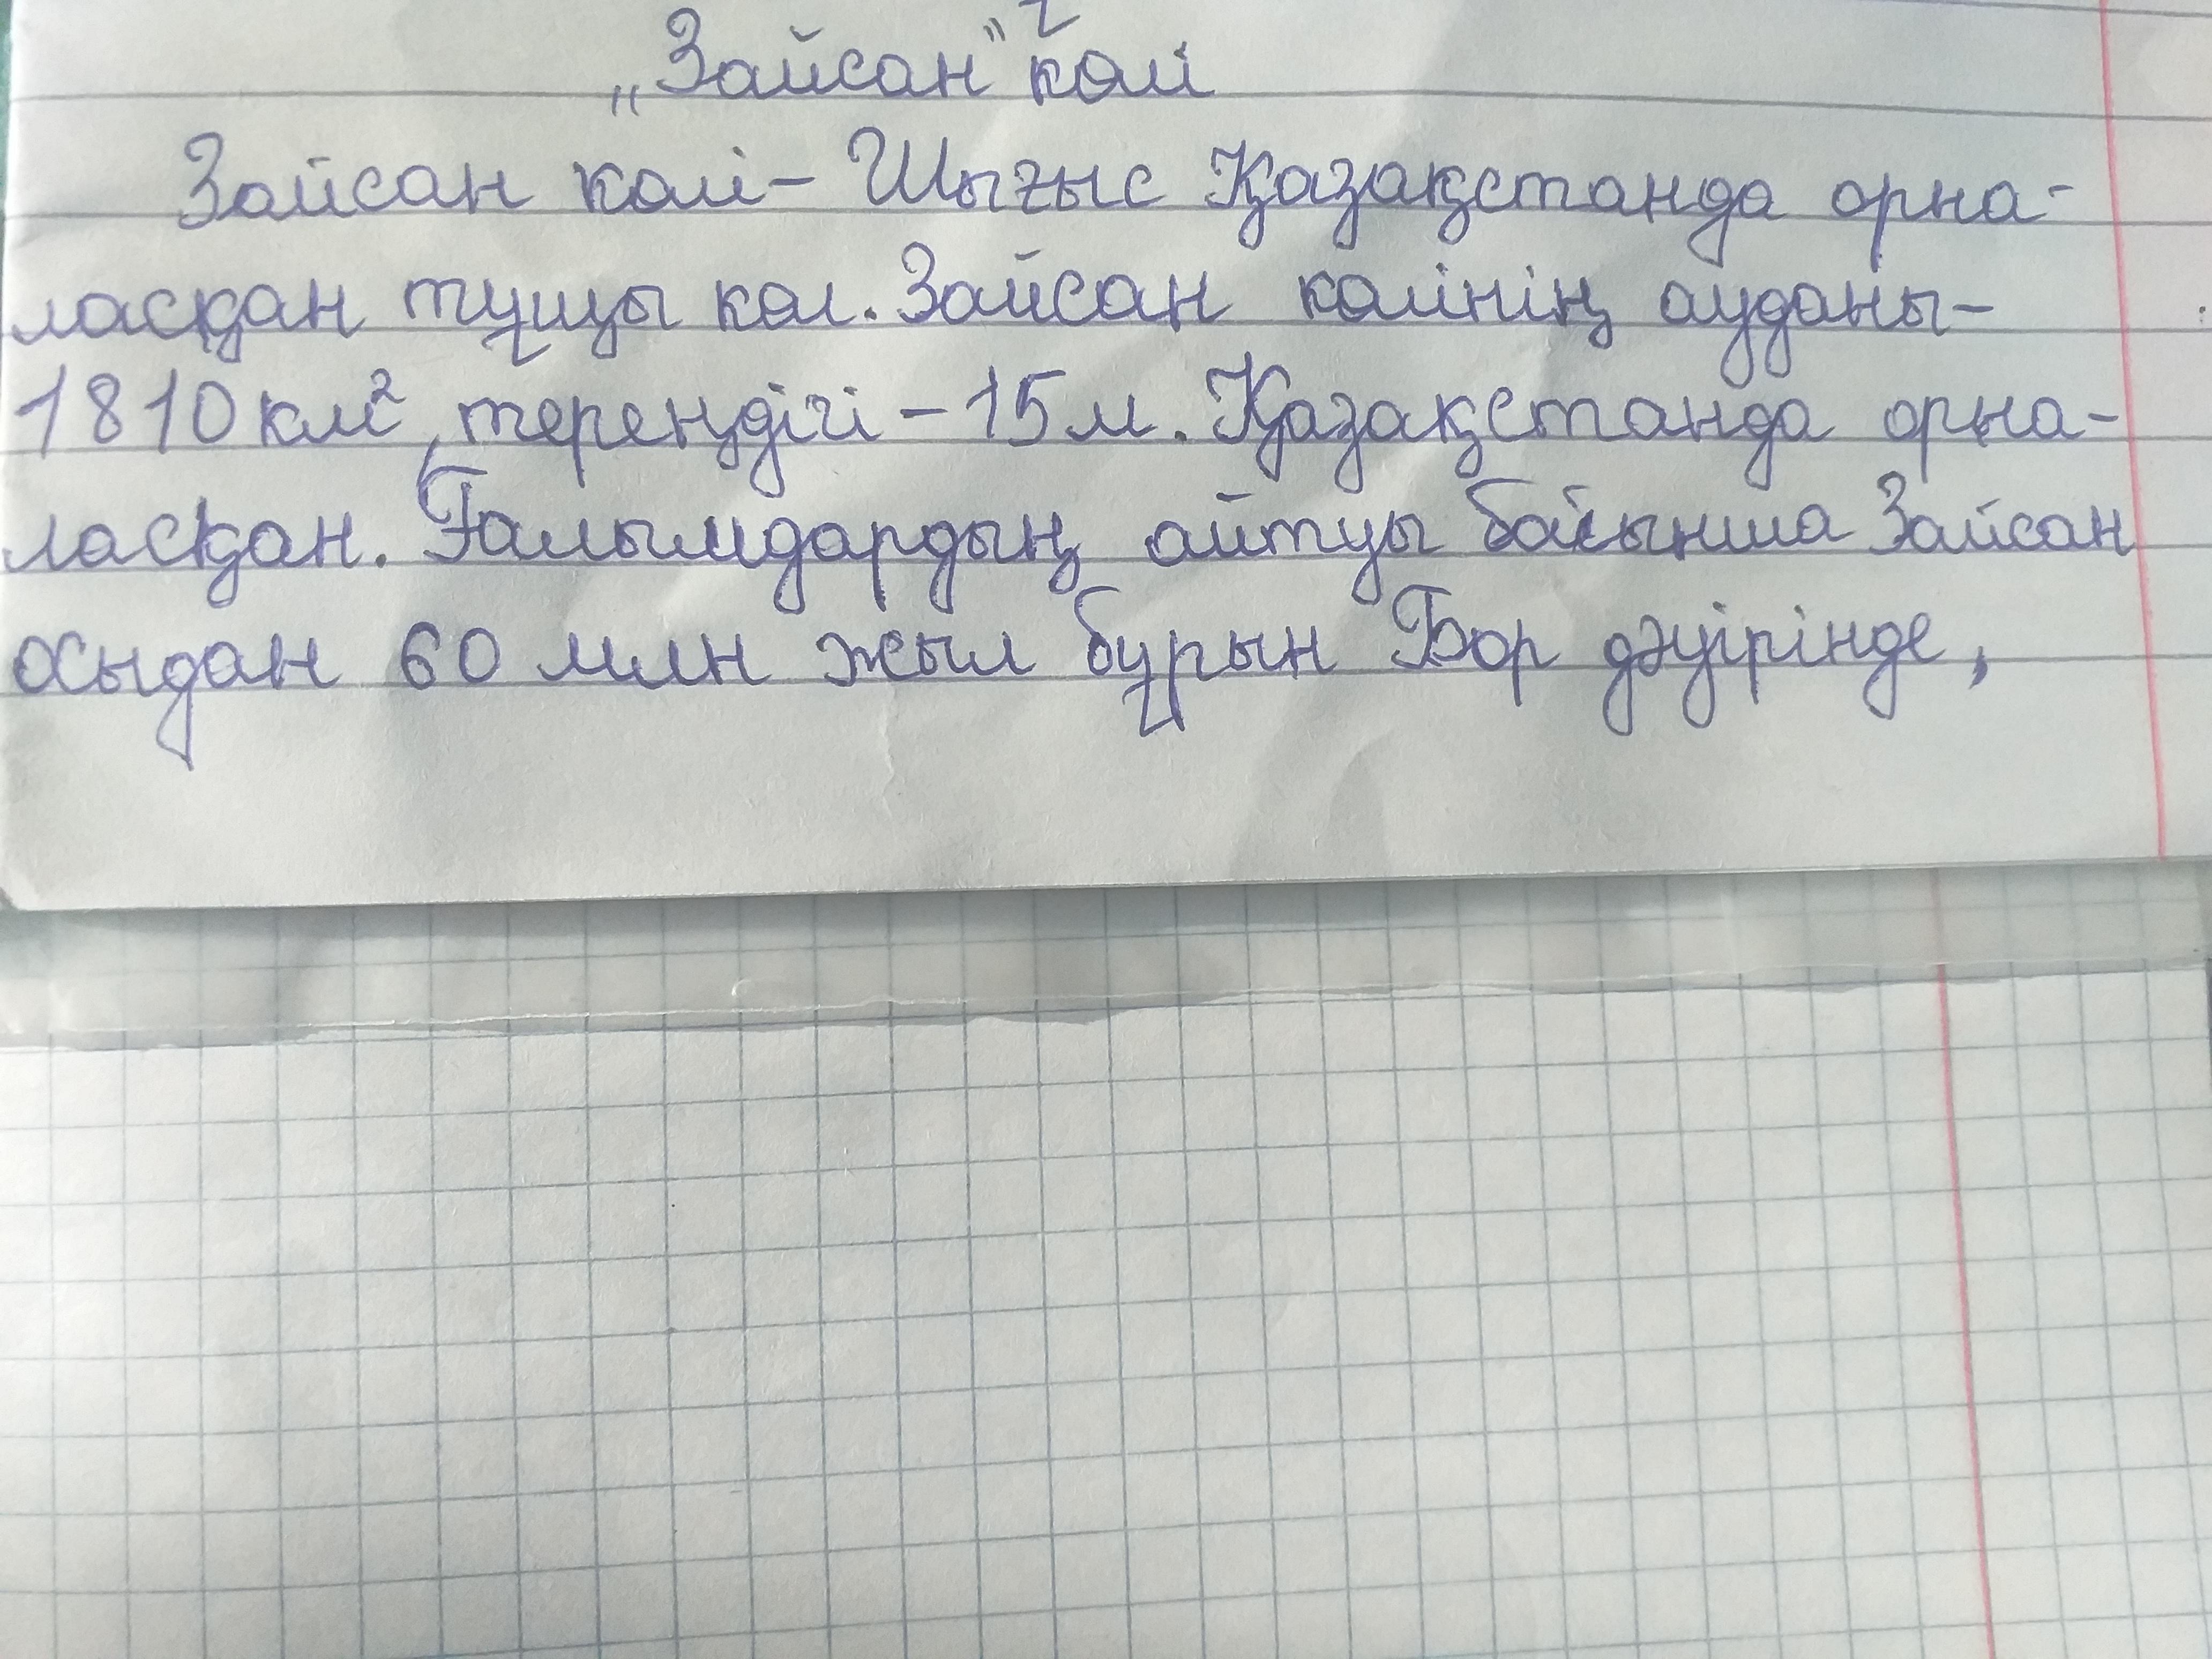 „Зайсан” көлі
Зайсан көлі – Шығыс Қазақстанда орна-
ласқан тұщы көл. Зайсан көлінің ауданы –
1810 км², тереңдігі – 15 м. Қазақстанда орна-
ласқан. Ғалымдардың айтуы бойынша Зайсан
осыдан 60 млн жыл бұрын Бор дәуірінде,